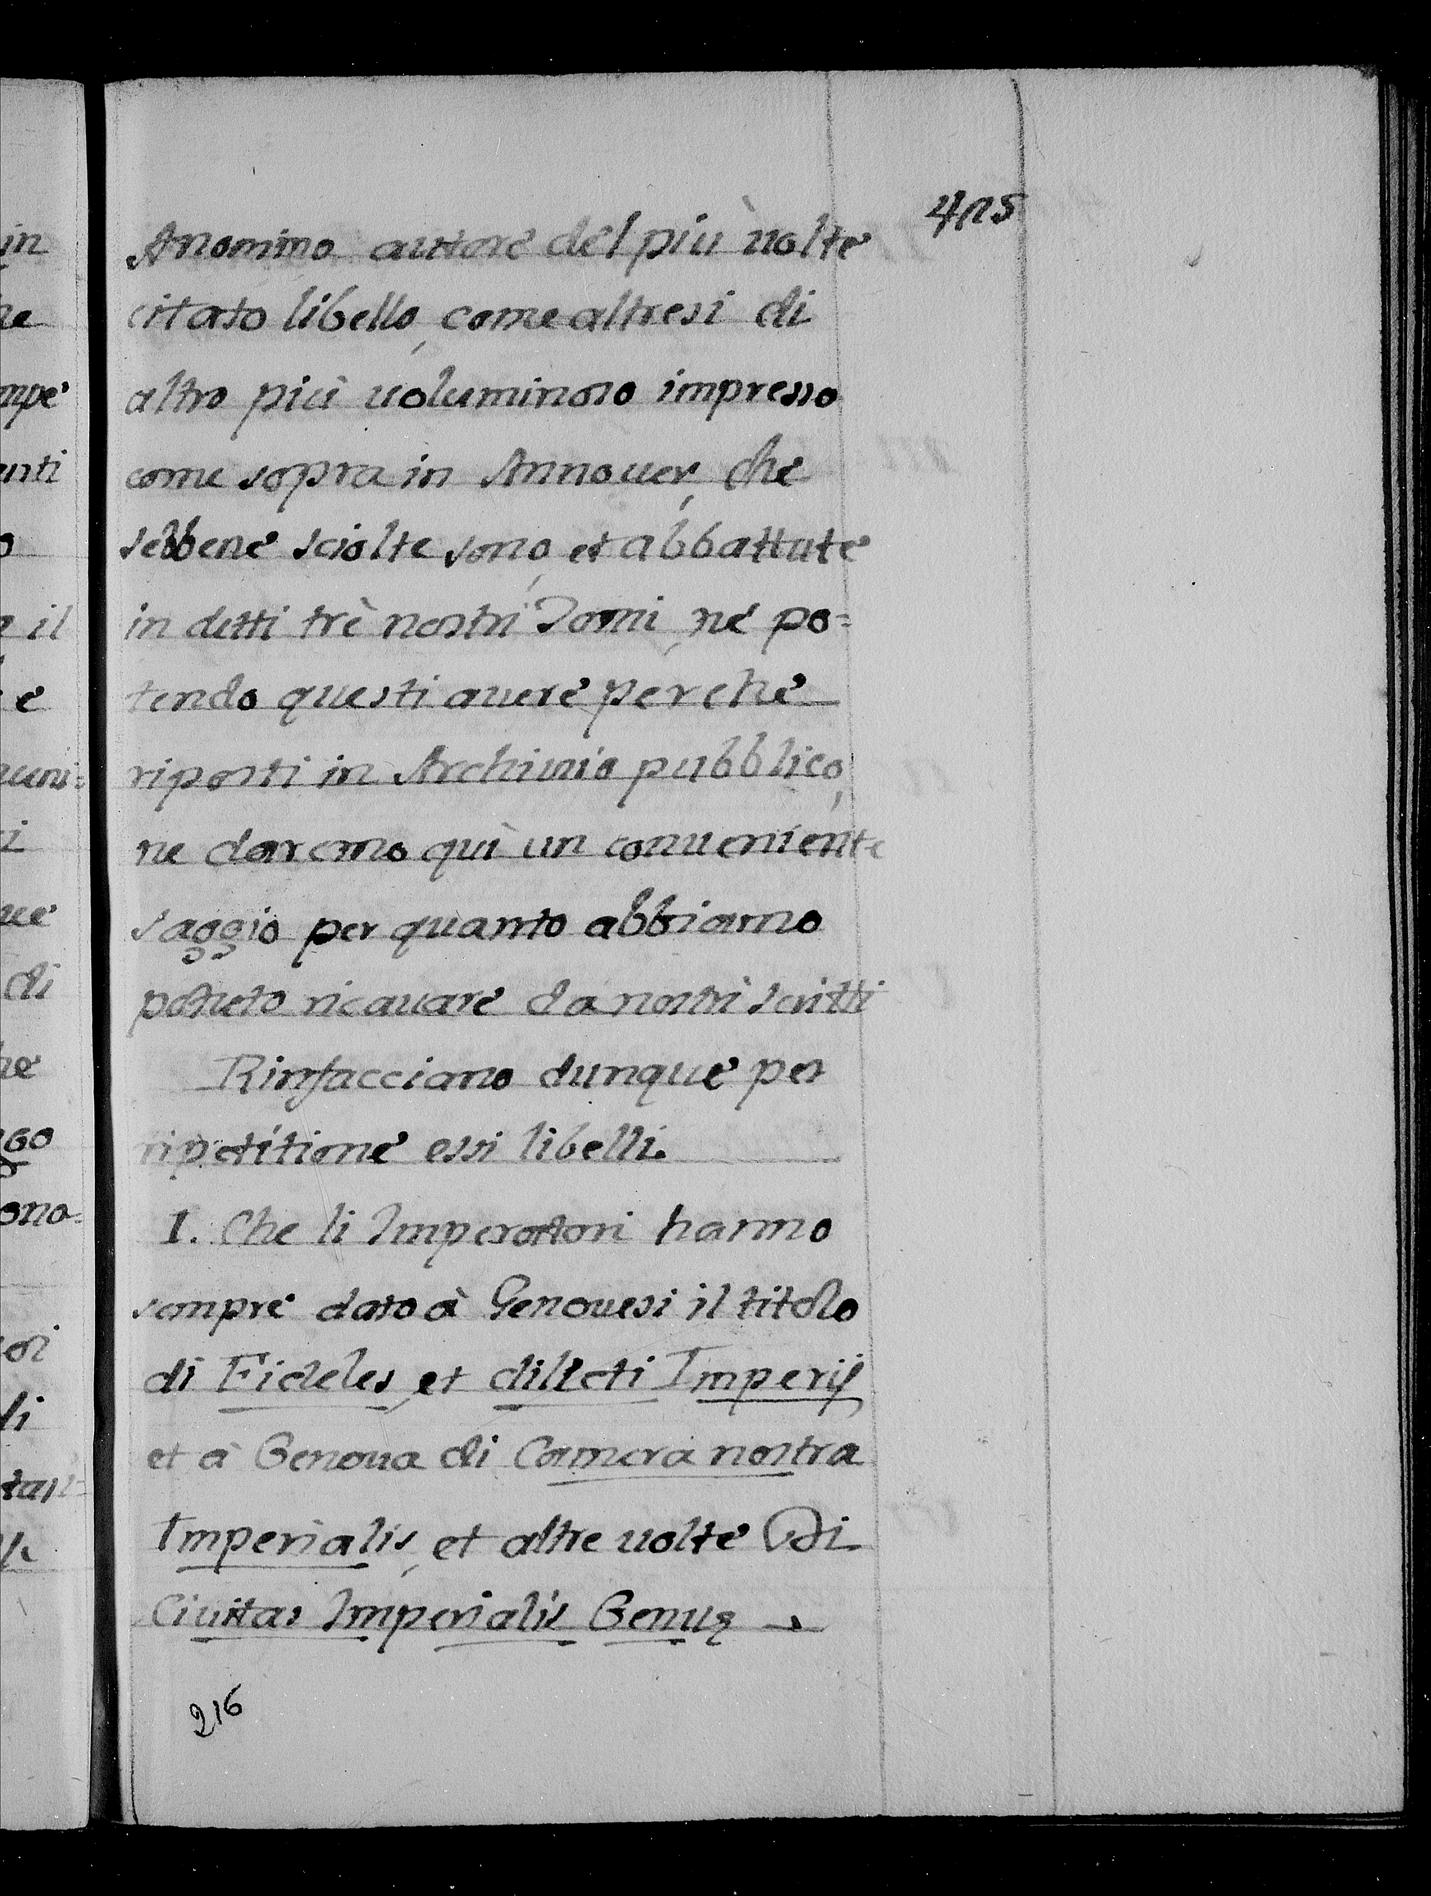 415
Anonimo autore del più uolte
citato libello, come altresi di
altro più uoluminoso impresso
come sopra in Annouer, che
sebbene sciolte sono, et abbattute
in detti trè nostri Tomi, nè po=
tendo questi auere perche
riposti in Archiuio pubblico,
ne daremo quì un conueniente
saggio per quanto abbiamo
potuto ricauare da nostri scritti
Rinfacciano dunque per
ripetitione essi libelli.
I. Che li Imperatori hanno
sempre dato à Genouesi il titolo
di Fideles, et dilecti Imperij
et à Genoua di Camera nostra
Imperialis, et altre uolte Di
Ciuitas Imperialis Genuę
216